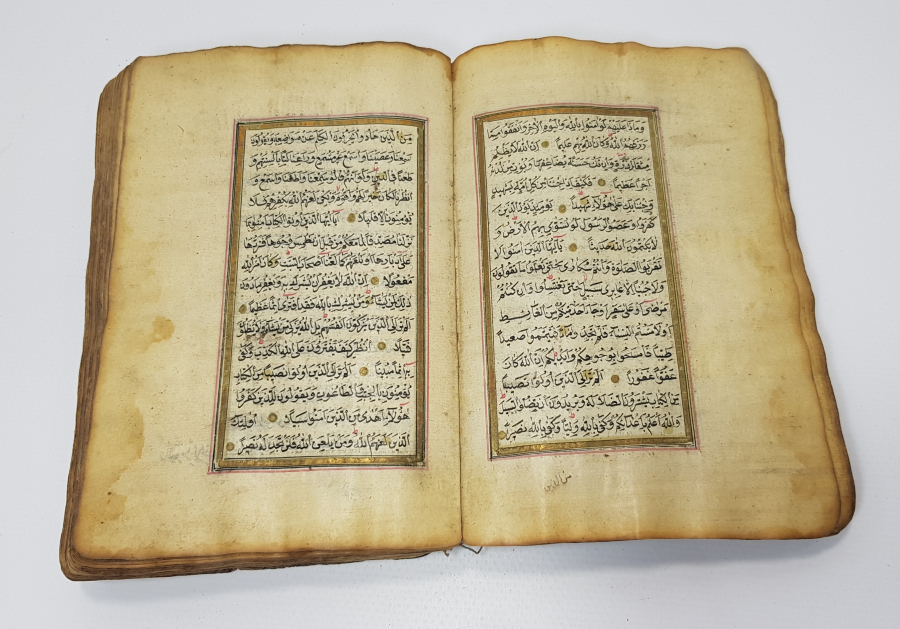 وَمَاذَا عَلَيْهِمْ لَوْ اٰمَنُوا بِاللّٰهِ وَالْيَوْمِ الْاٰخِرِ وَاَنْفَقُوا مِمَّا
رَزَقَهُمُ اللّٰهُ وَكَانَ اللّٰهُ بِهِمْ عَلِيمًا اِنَّ اللّٰهَ لَا يَظْلِمُ
مِثْقَالَ ذَرَّةٍ وَاِنْ تَكُ حَسَنَةً يُضَاعِفْهَا وَيُؤْتِ مِنْ لَدُنْهُ
اَجْرًا عَظِيمًا فَكَيْفَ اِذَا جِئْنَا مِنْ كُلِّ اُمَّةٍ بِشَهِيدٍ
وَجِئْنَا بِكَ عَلٰى هٰؤُلَاءِ شَهِيدًا يَوْمَئِذٍ يَوَدُّ الَّذِينَ
كَفَرُوا وَعَصَوُا الرَّسُولَ لَوْ تُسَوّٰى بِهِمُ الْاَرْضُ وَ
لَا يَكْتُمُونَ اللّٰهَ حَدِيثًا يَا اَيُّهَا الَّذِينَ اٰمَنُوا لَا
تَقْرَبُوا الصَّلٰوةَ وَاَنْتُمْ سُكَارٰى حَتّٰى تَعْلَمُوا مَا تَقُولُونَ
وَلَا جُنُبًا اِلَّا عَابِرِي سَبِيلٍ حَتّٰى تَغْتَسِلُوا وَاِنْ كُنْتُمْ
مَرْضٰى اَوْ عَلٰى سَفَرٍ اَوْ جَاءَ اَحَدٌ مِنْكُمْ مِنَ الْغَائِطِ
اَوْ لَامَسْتُمُ النِّسَاءَ فَلَمْ تَجِدُوا مَاءً فَتَيَمَّمُوا صَعِيدًا
طَيِّبًا فَامْسَحُوا بِوُجُوهِكُمْ وَاَيْدِيكُمْ اِنَّ اللّٰهَ كَانَ
عَفُوًّا غَفُورًا اَلَمْ تَرَ اِلَى الَّذِينَ اُوتُوا نَصِيبًا
مِنَ الْكِتَابِ يَشْتَرُونَ الضَّلَالَةَ وَيُرِيدُونَ اَنْ تَضِلُّوا السَّبِيلَ
وَاللّٰهُ اَعْلَمُ بِاَعْدَائِكُمْ وَكَفٰى بِاللّٰهِ وَلِيًّا وَكَفٰى بِاللّٰهِ نَصِيرًا
من الذين
مِنَ الَّذِينَ هَادُوا يُحَرِّفُونَ الْكَلِمَ عَنْ مَوَاضِعِهِ وَيَقُولُونَ
سَمِعْنَا وَعَصَيْنَا وَاسْمَعْ غَيْرَ مُسْمَعٍ وَرَاعِنَا لَيًّا بِاَلْسِنَتِهِمْ وَ
طَعْنًا فِي الدِّينِ وَلَوْ اَنَّهُمْ قَالُوا سَمِعْنَا وَاَطَعْنَا وَاسْمَعْ وَ
انْظُرْنَا لَكَانَ خَيْرًا لَهُمْ وَاَقْوَمَ وَلٰكِنْ لَعَنَهُمُ اللّٰهُ بِكُفْرِهِمْ فَلَا
يُؤْمِنُونَ اِلَّا قَلِيلًا يَا اَيُّهَا الَّذِينَ اُوتُوا الْكِتَابَ اٰمِنُوا بِمَا
نَزَّلْنَا مُصَدِّقًا لِمَا مَعَكُمْ مِنْ قَبْلِ اَنْ نَطْمِسَ وُجُوهًا فَنَرُدَّهَا
عَلٰى اَدْبَارِهَا اَوْ نَلْعَنَهُمْ كَمَا لَعَنَّا اَصْحَابَ السَّبْتِ وَكَانَ اَمْرُ اللّٰهِ
مَفْعُولًا اِنَّ اللّٰهَ لَا يَغْفِرُ اَنْ يُشْرَكَ بِهِ وَيَغْفِرُ مَا دُونَ
ذٰلِكَ لِمَنْ يَشَاءُ وَمَنْ يُشْرِكْ بِاللّٰهِ فَقَدِ افْتَرٰى اِثْمًا عَظِيمًا
اَلَمْ تَرَ اِلَى الَّذِينَ يُزَكُّونَ اَنْفُسَهُمْ بَلِ اللّٰهُ يُزَكِّي مَنْ يَشَاءُ وَلَا يُظْلَمُونَ
فَتِيلًا اُنْظُرْ كَيْفَ يَفْتَرُونَ عَلَى اللّٰهِ الْكَذِبَ وَكَفٰى
بِهِ اِثْمًا مُبِينًا اَلَمْ تَرَ اِلَى الَّذِينَ اُوتُوا نَصِيبًا مِنَ الْكِتَابِ
يُؤْمِنُونَ بِالْجِبْتِ وَالطَّاغُوتِ وَيَقُولُونَ لِلَّذِينَ كَفَرُوا
هٰؤُلَاءِ اَهْدٰى مِنَ الَّذِينَ اٰمَنُوا سَبِيلًا اُولٰئِكَ
الَّذِينَ لَعَنَهُمُ اللّٰهُ وَمَنْ يَلْعَنِ اللّٰهُ فَلَنْ تَجِدَ لَهُ نَصِيرًا